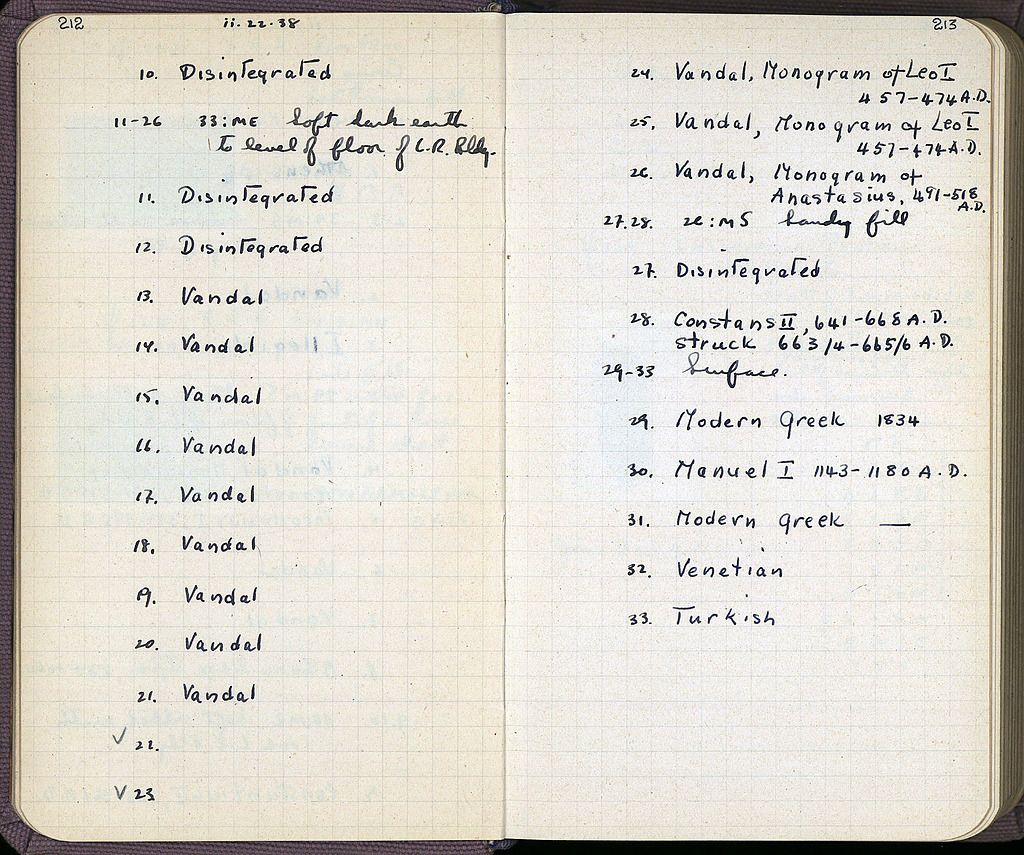 212
ii·22·38
10. Disintegrated
11-26 33:ME Soft dark earth
to level of floor of L.R. Bldg.
11. Disintegrated
12. Disintegrated
13. Vandal
14. Vandal
15. Vandal
16. Vandal
17. Vandal
18. Vandal
19. Vandal
20. Vandal
21. Vandal
√ 22.
√ 23
213
24. Vandal, Monogram of Leo I
457-474 A.D.
25. Vandal, Monogram of Leo I
457-474 A.D.
26. Vandal, Monogram of
Anastasius, 491-518
A.D.
27.28. 26:MS Sandy fill
27. Disintegrated
28. Constans II, 641-668 A.D.
struck 663/4-665/6 A.D.
29-33 Surface.
29. Modern Greek 1834
30. Manuel I 1143-1180 A.D.
31. Modern Greek —
32. Venetian
33. Turkish